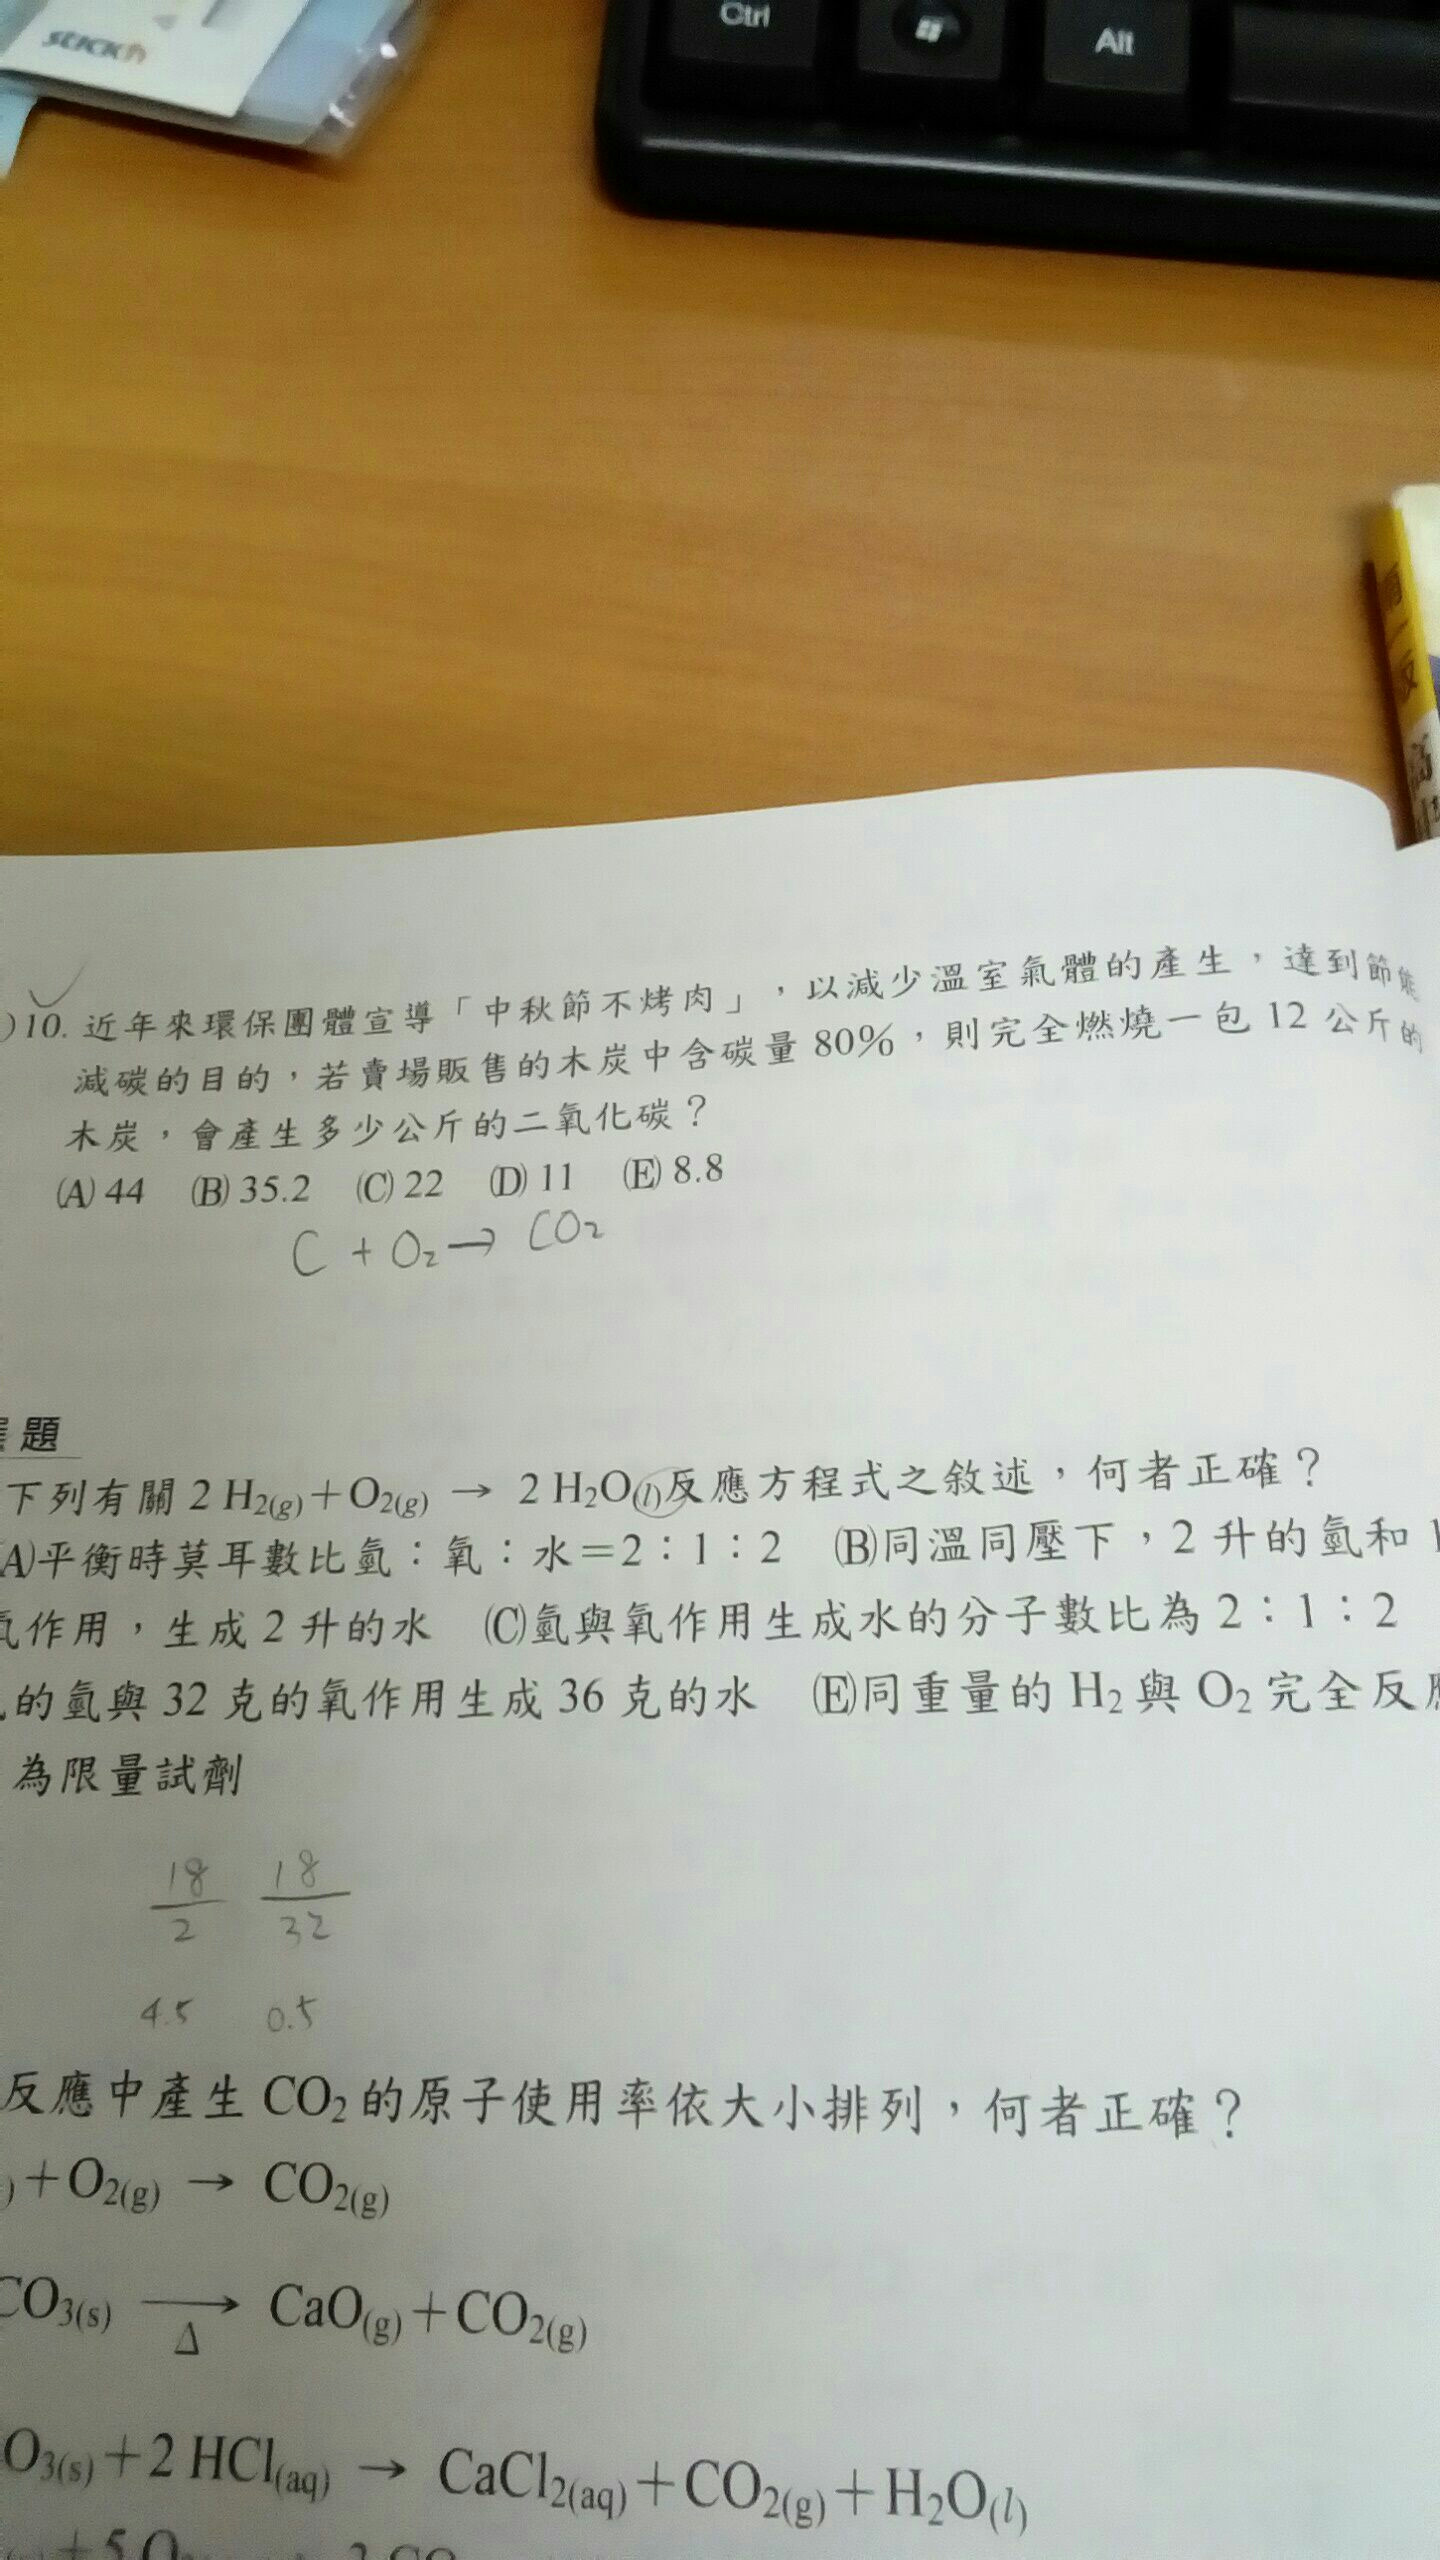 stick n
Ctrl
Alt
)10. 近年來環保團體宣導「中秋節不烤肉」，以減少溫室氣體的產生，達到節能
減碳的目的，若賣場販售的木炭中含碳量 80%，則完全燃燒一包 12 公斤的
木炭，會產生多少公斤的二氧化碳？
(A) 44 (B) 35.2 (C) 22 (D) 11 (E) 8.8
C + O₂ → CO₂
題
下列有關 2 H₂(g)+O₂(g) → 2 H₂O(l)反應方程式之敘述，何者正確？
(A)平衡時莫耳數比氫：氧：水＝2：1：2 (B)同溫同壓下，2 升的氫和 1
氧作用，生成 2 升的水 (C)氫與氧作用生成水的分子數比為 2：1：2
的氫與 32 克的氧作用生成 36 克的水 (E)同重量的 H₂ 與 O₂ 完全反應
為限量試劑
18/2 18/32
4.5 0.5
反應中產生 CO₂ 的原子使用率依大小排列，何者正確？
)+O₂(g) → CO₂(g)
CO₃(s) →Δ CaO(g)+CO₂(g)
O₃(s)+2 HCl(aq) → CaCl₂(aq)+CO₂(g)+H₂O(l)
+5 O₂